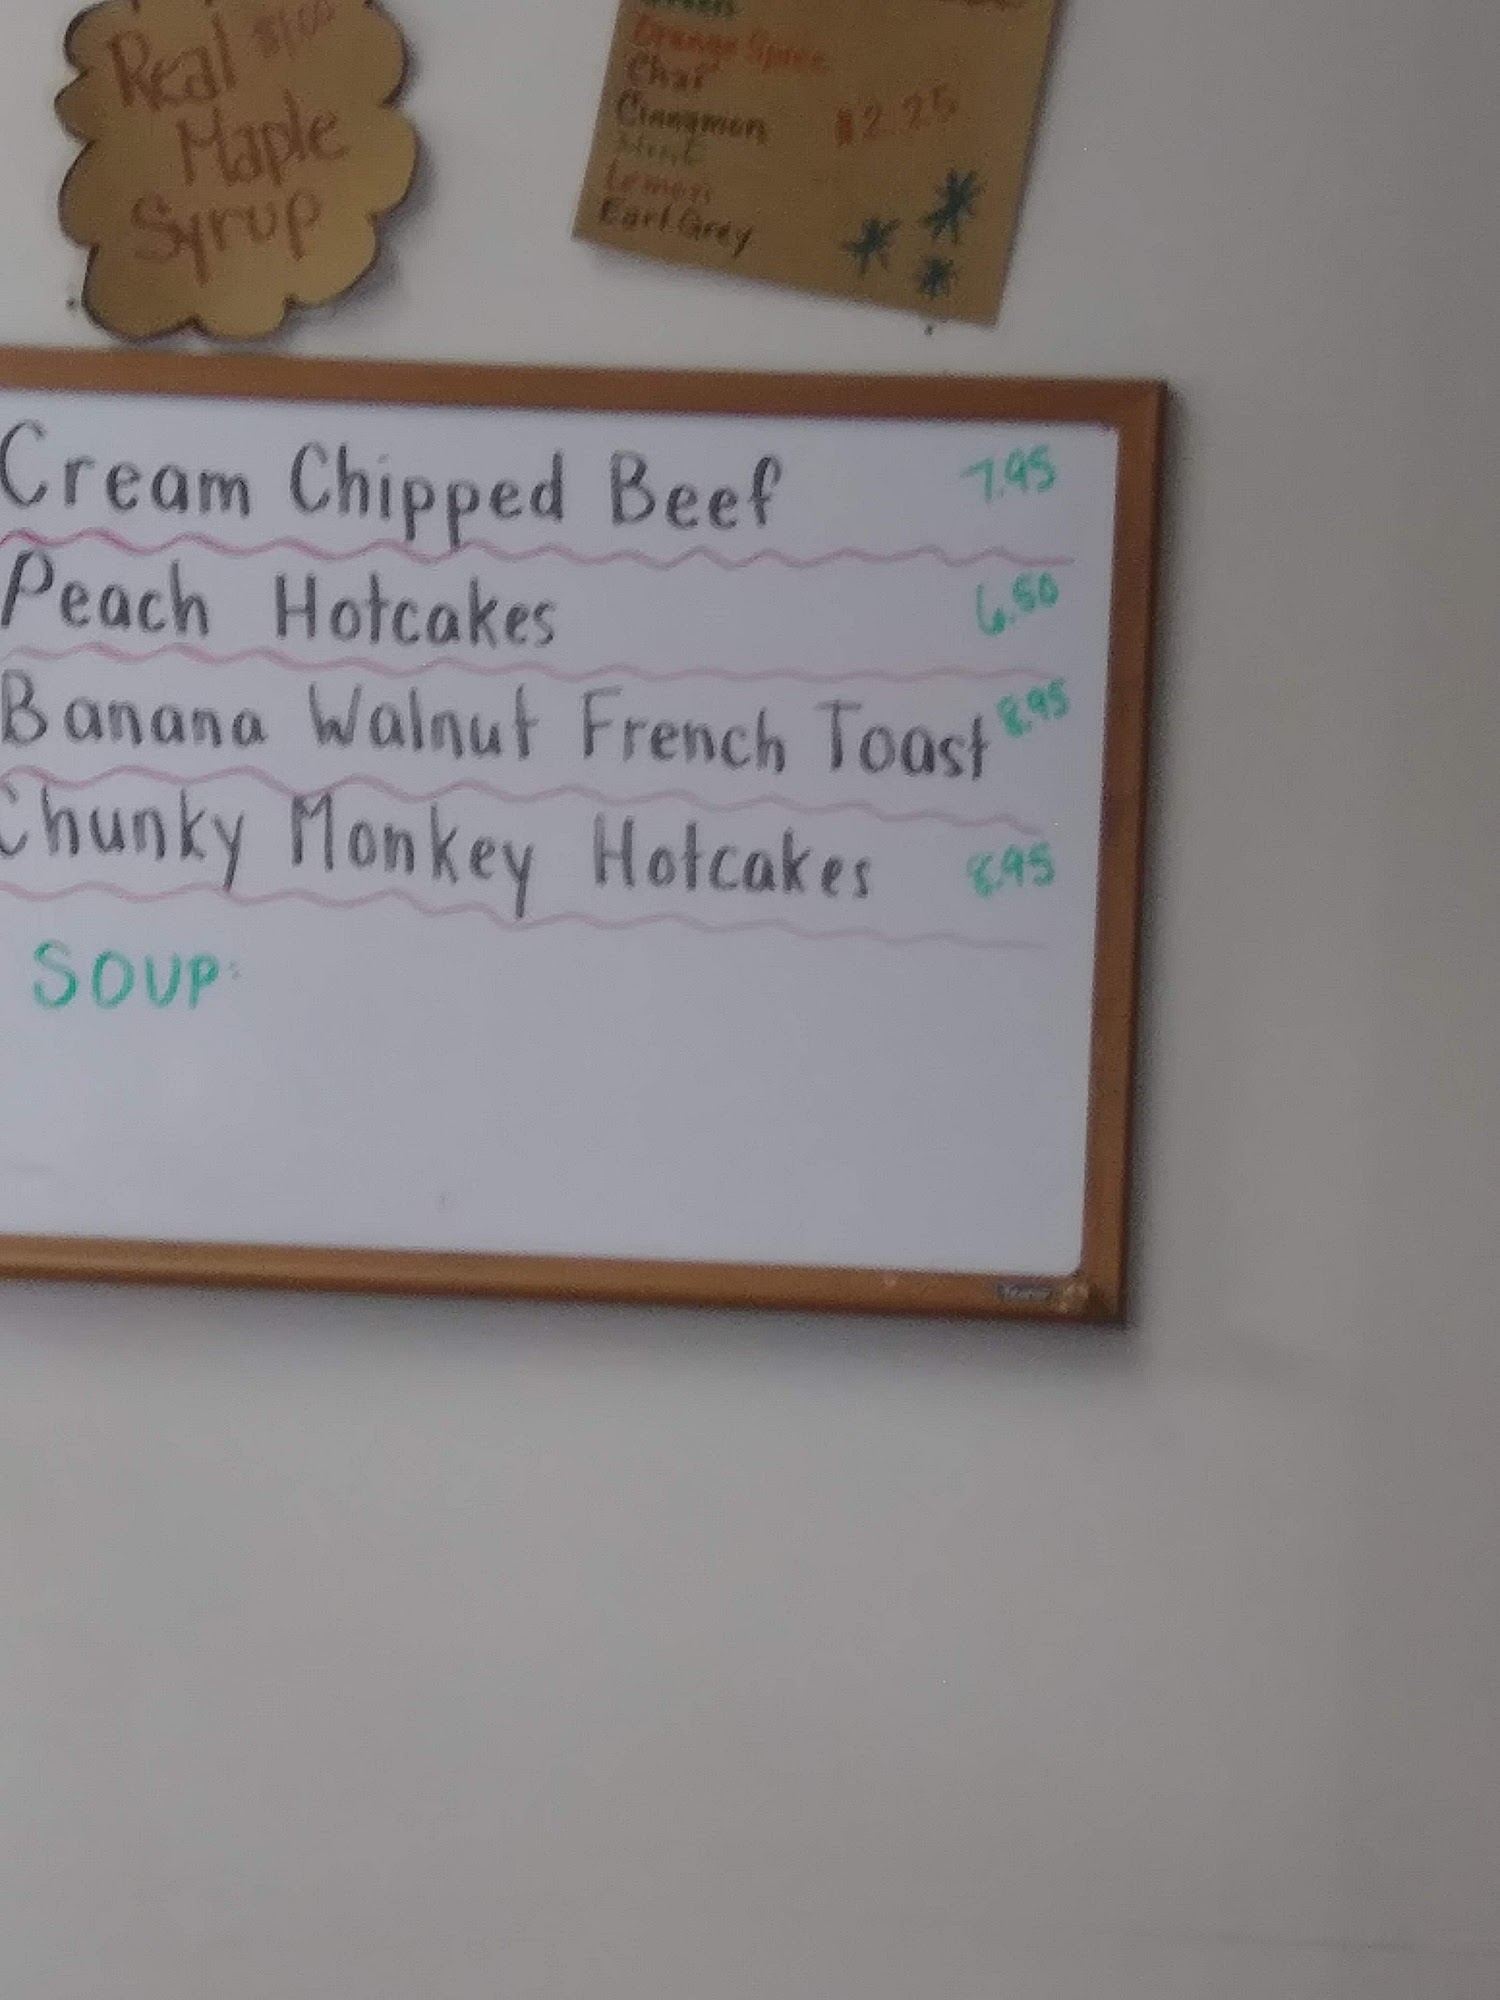 Real $1.00
Maple
Syrup
Green
Orange Spice
Chai
Cinnamon
Mint
Lemon
Earl Grey
$2.25
Cream Chipped Beef 7.95
Peach Hotcakes 6.50
Banana Walnut French Toast 8.95
Chunky Monkey Hotcakes 8.95
SOUP: